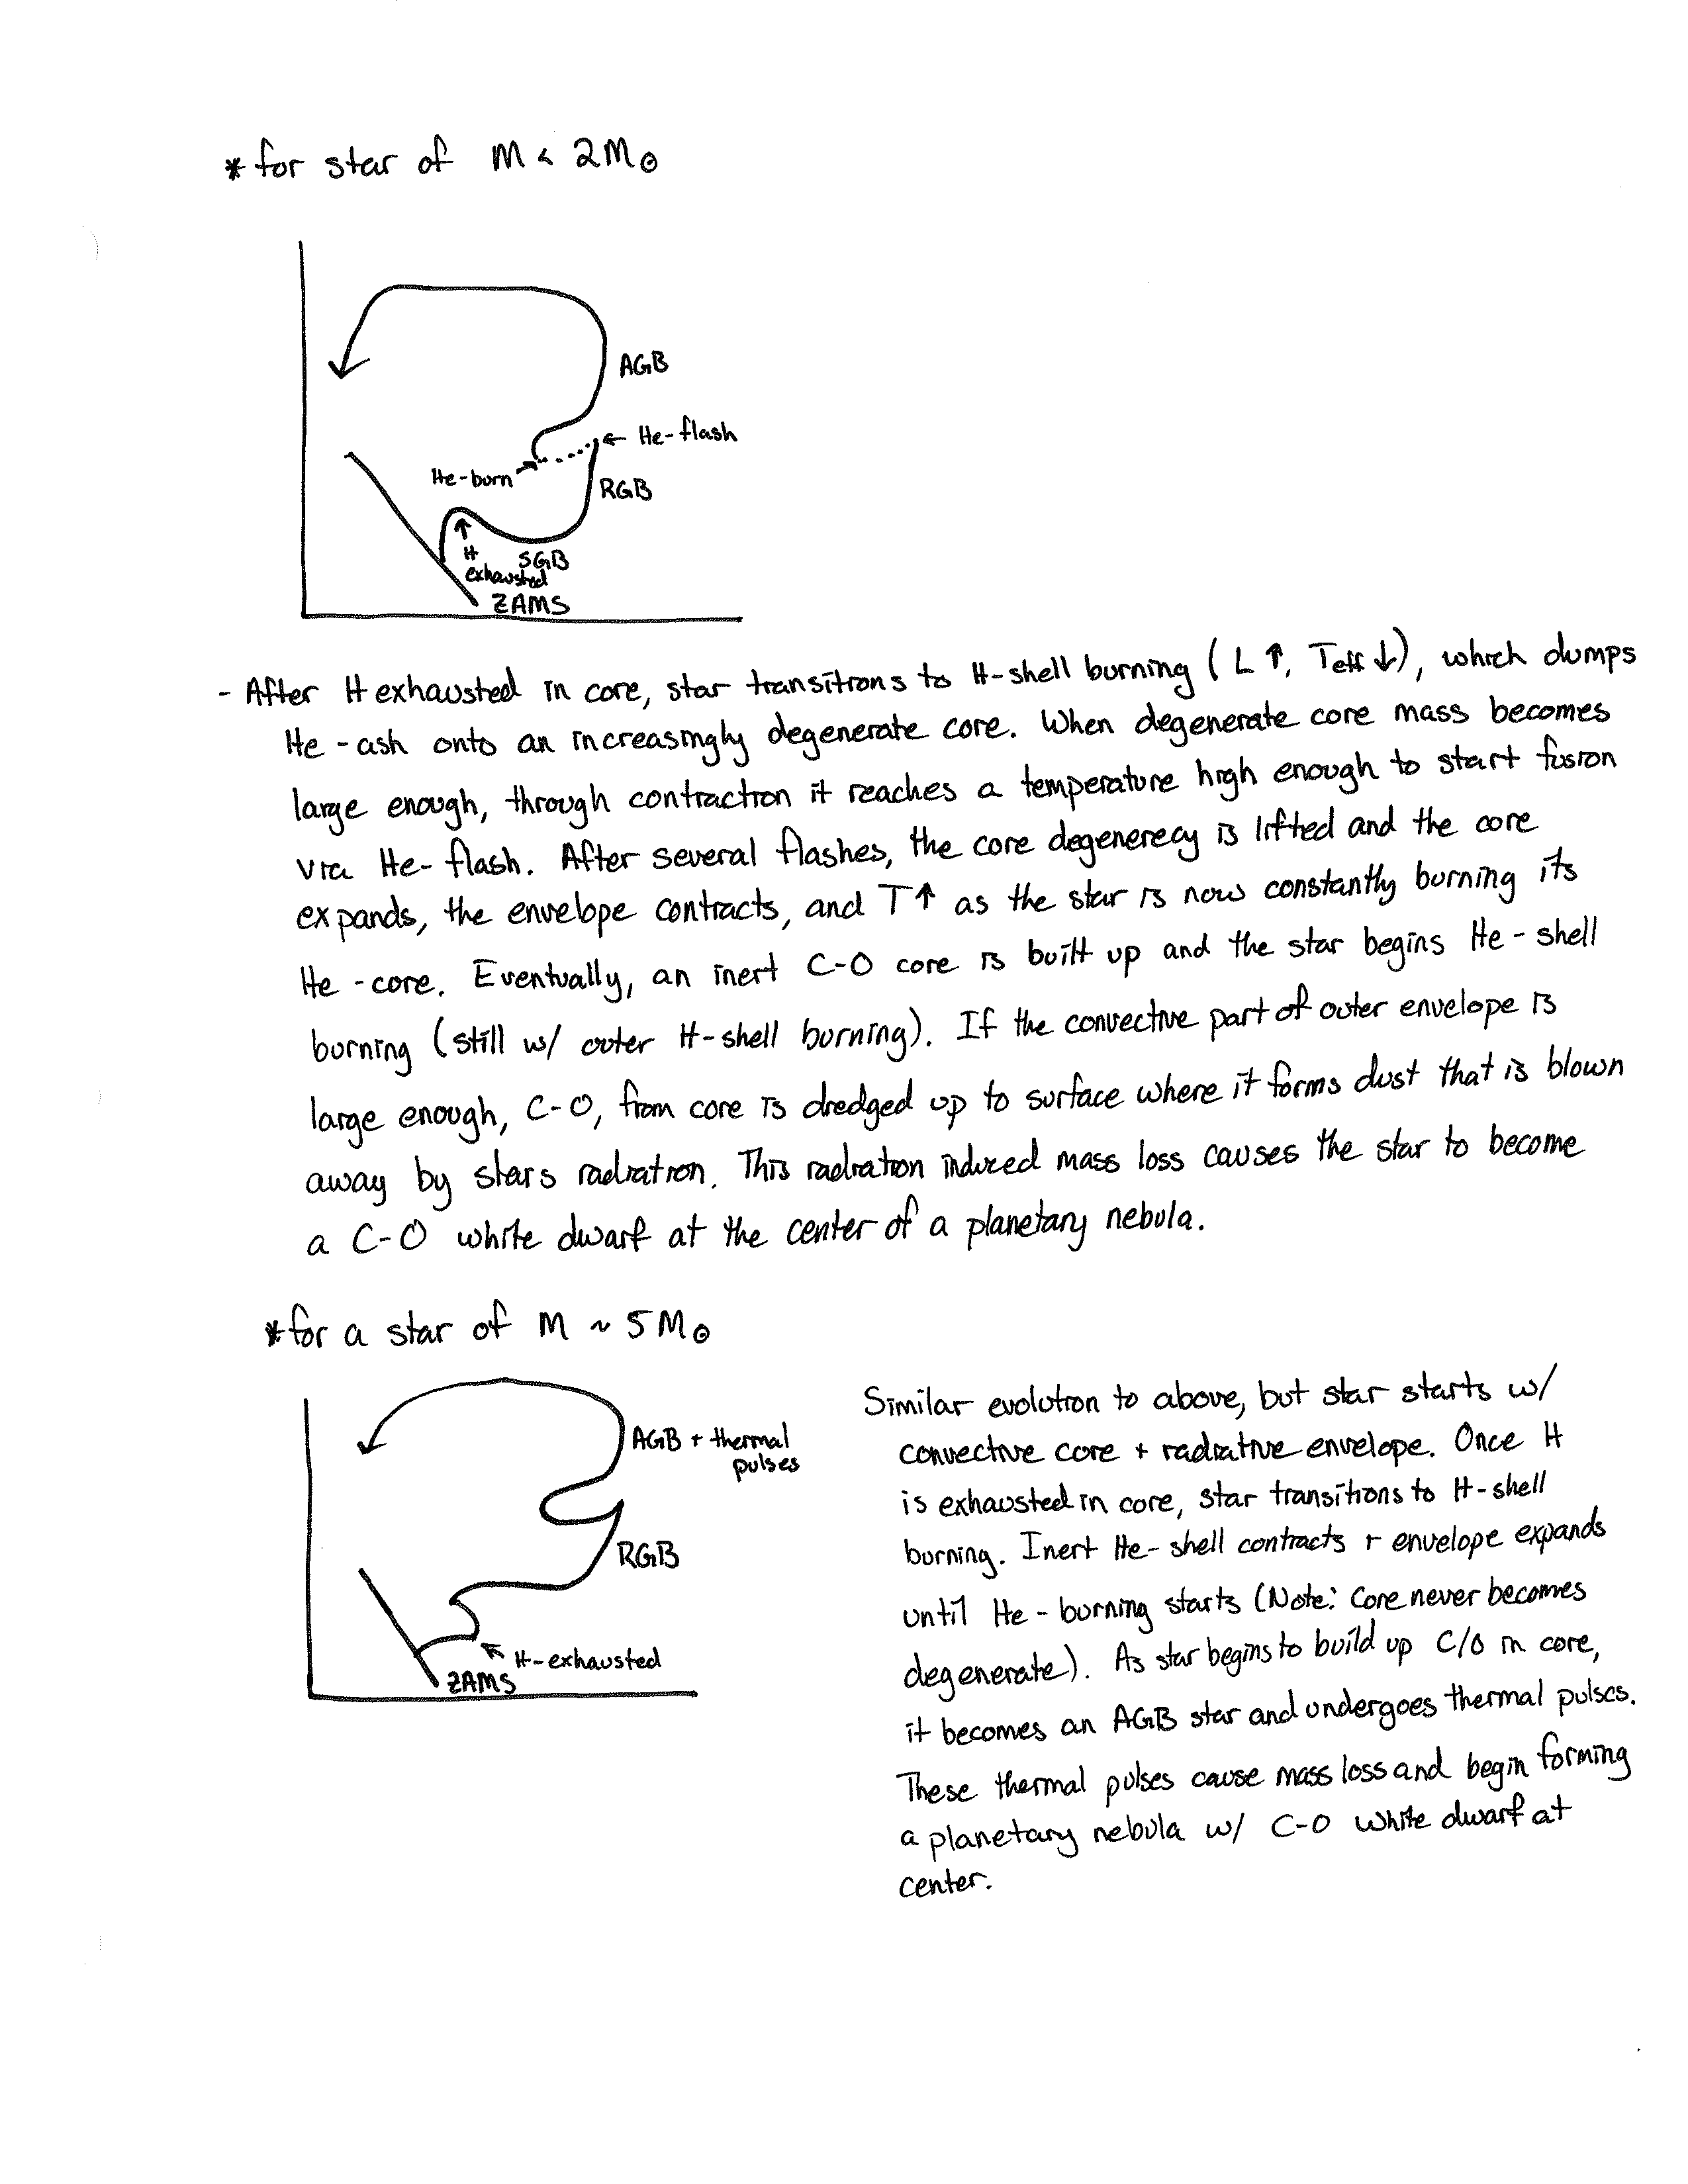 * for star of M < 2M☉
AGB
← He-flash
He-burn
RGB
H
exhausted
SGB
ZAMS
- After H exhausted in core, star transitions to H-shell burning (L ↑, Teff ↓), which dumps
He-ash onto an increasingly degenerate core. When degenerate core mass becomes
large enough, through contraction it reaches a temperature high enough to start fusion
via He-flash. After several flashes, the core degenerecy is lifted and the core
expands, the envelope contracts, and T↑ as the star is now constantly burning its
He-core. Eventually, an inert C-O core is built up and the star begins He-shell
burning (still w/ outer H-shell burning). If the convective part of outer envelope is
large enough, C-O, from core is dredged up to surface where it forms dust that is blown
away by stars radiation. This radiation induced mass loss causes the star to become
a C-O white dwarf at the center of a planetary nebula.
* for a star of M ~ 5M☉
AGB + thermal
pulses
RGB
H-exhausted
ZAMS
Similar evolution to above, but star starts w/
convective core + radiative envelope. Once H
is exhausted in core, star transitions to H-shell
burning. Inert He-shell contracts + envelope expands
until He-burning starts (Note: Core never becomes
degenerate). As star begins to build up C/O in core,
it becomes an AGB star and undergoes thermal pulses.
These thermal pulses cause mass loss and begin forming
a planetary nebula w/ C-O white dwarf at
center.